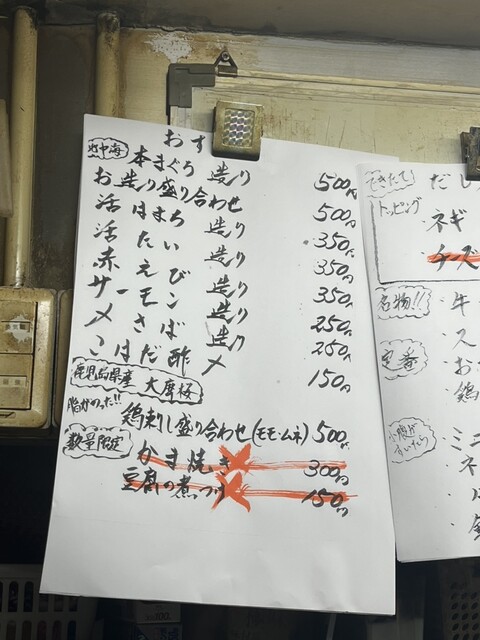 おす
地中海 本まぐろ 造り 500円
お造り盛り合わせ 500円
活 はまち 造り 350円
活 たい 造り 350円
赤えび 造り 350円
サーモン 造り 250円
〆さば 造り 250円
こはだ酢〆 150円
鹿児島県産 大摩桜
脂がのった!!
鶏刺し盛り合わせ(モモ・ムネ) 500円
数量限定 かま焼き 300円
豆腐の煮つけ 150円
できたて! だし
トッピング
・ネギ
・チーズ
名物!! ・牛
・ス
定番 ・お
・鶏
小腹がすいたら ・ミニ
・ネ